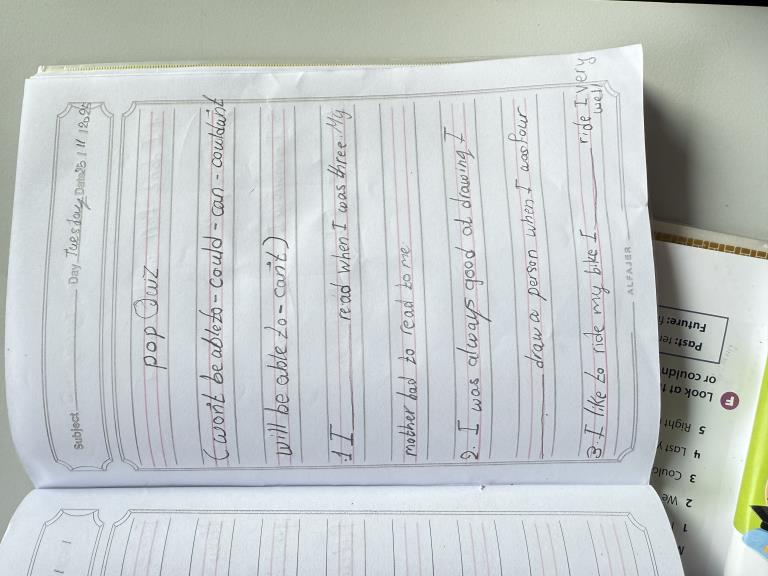 Subject Day Tuesday Date 25 / 11 / 2025
pop Quiz
(won't be able to - could - can - couldn't
will be able to - can't)
1. I ______ read when I was three. My
mother had to read to me
2. I was always good at drawing I
______ draw a person when I was four
3. I like to ride my bike I ______ ride I very
well
ALFAJER
Past:
Future:
Look at
or couldn
5 Right
4 Last y
3 Could
2 We
1